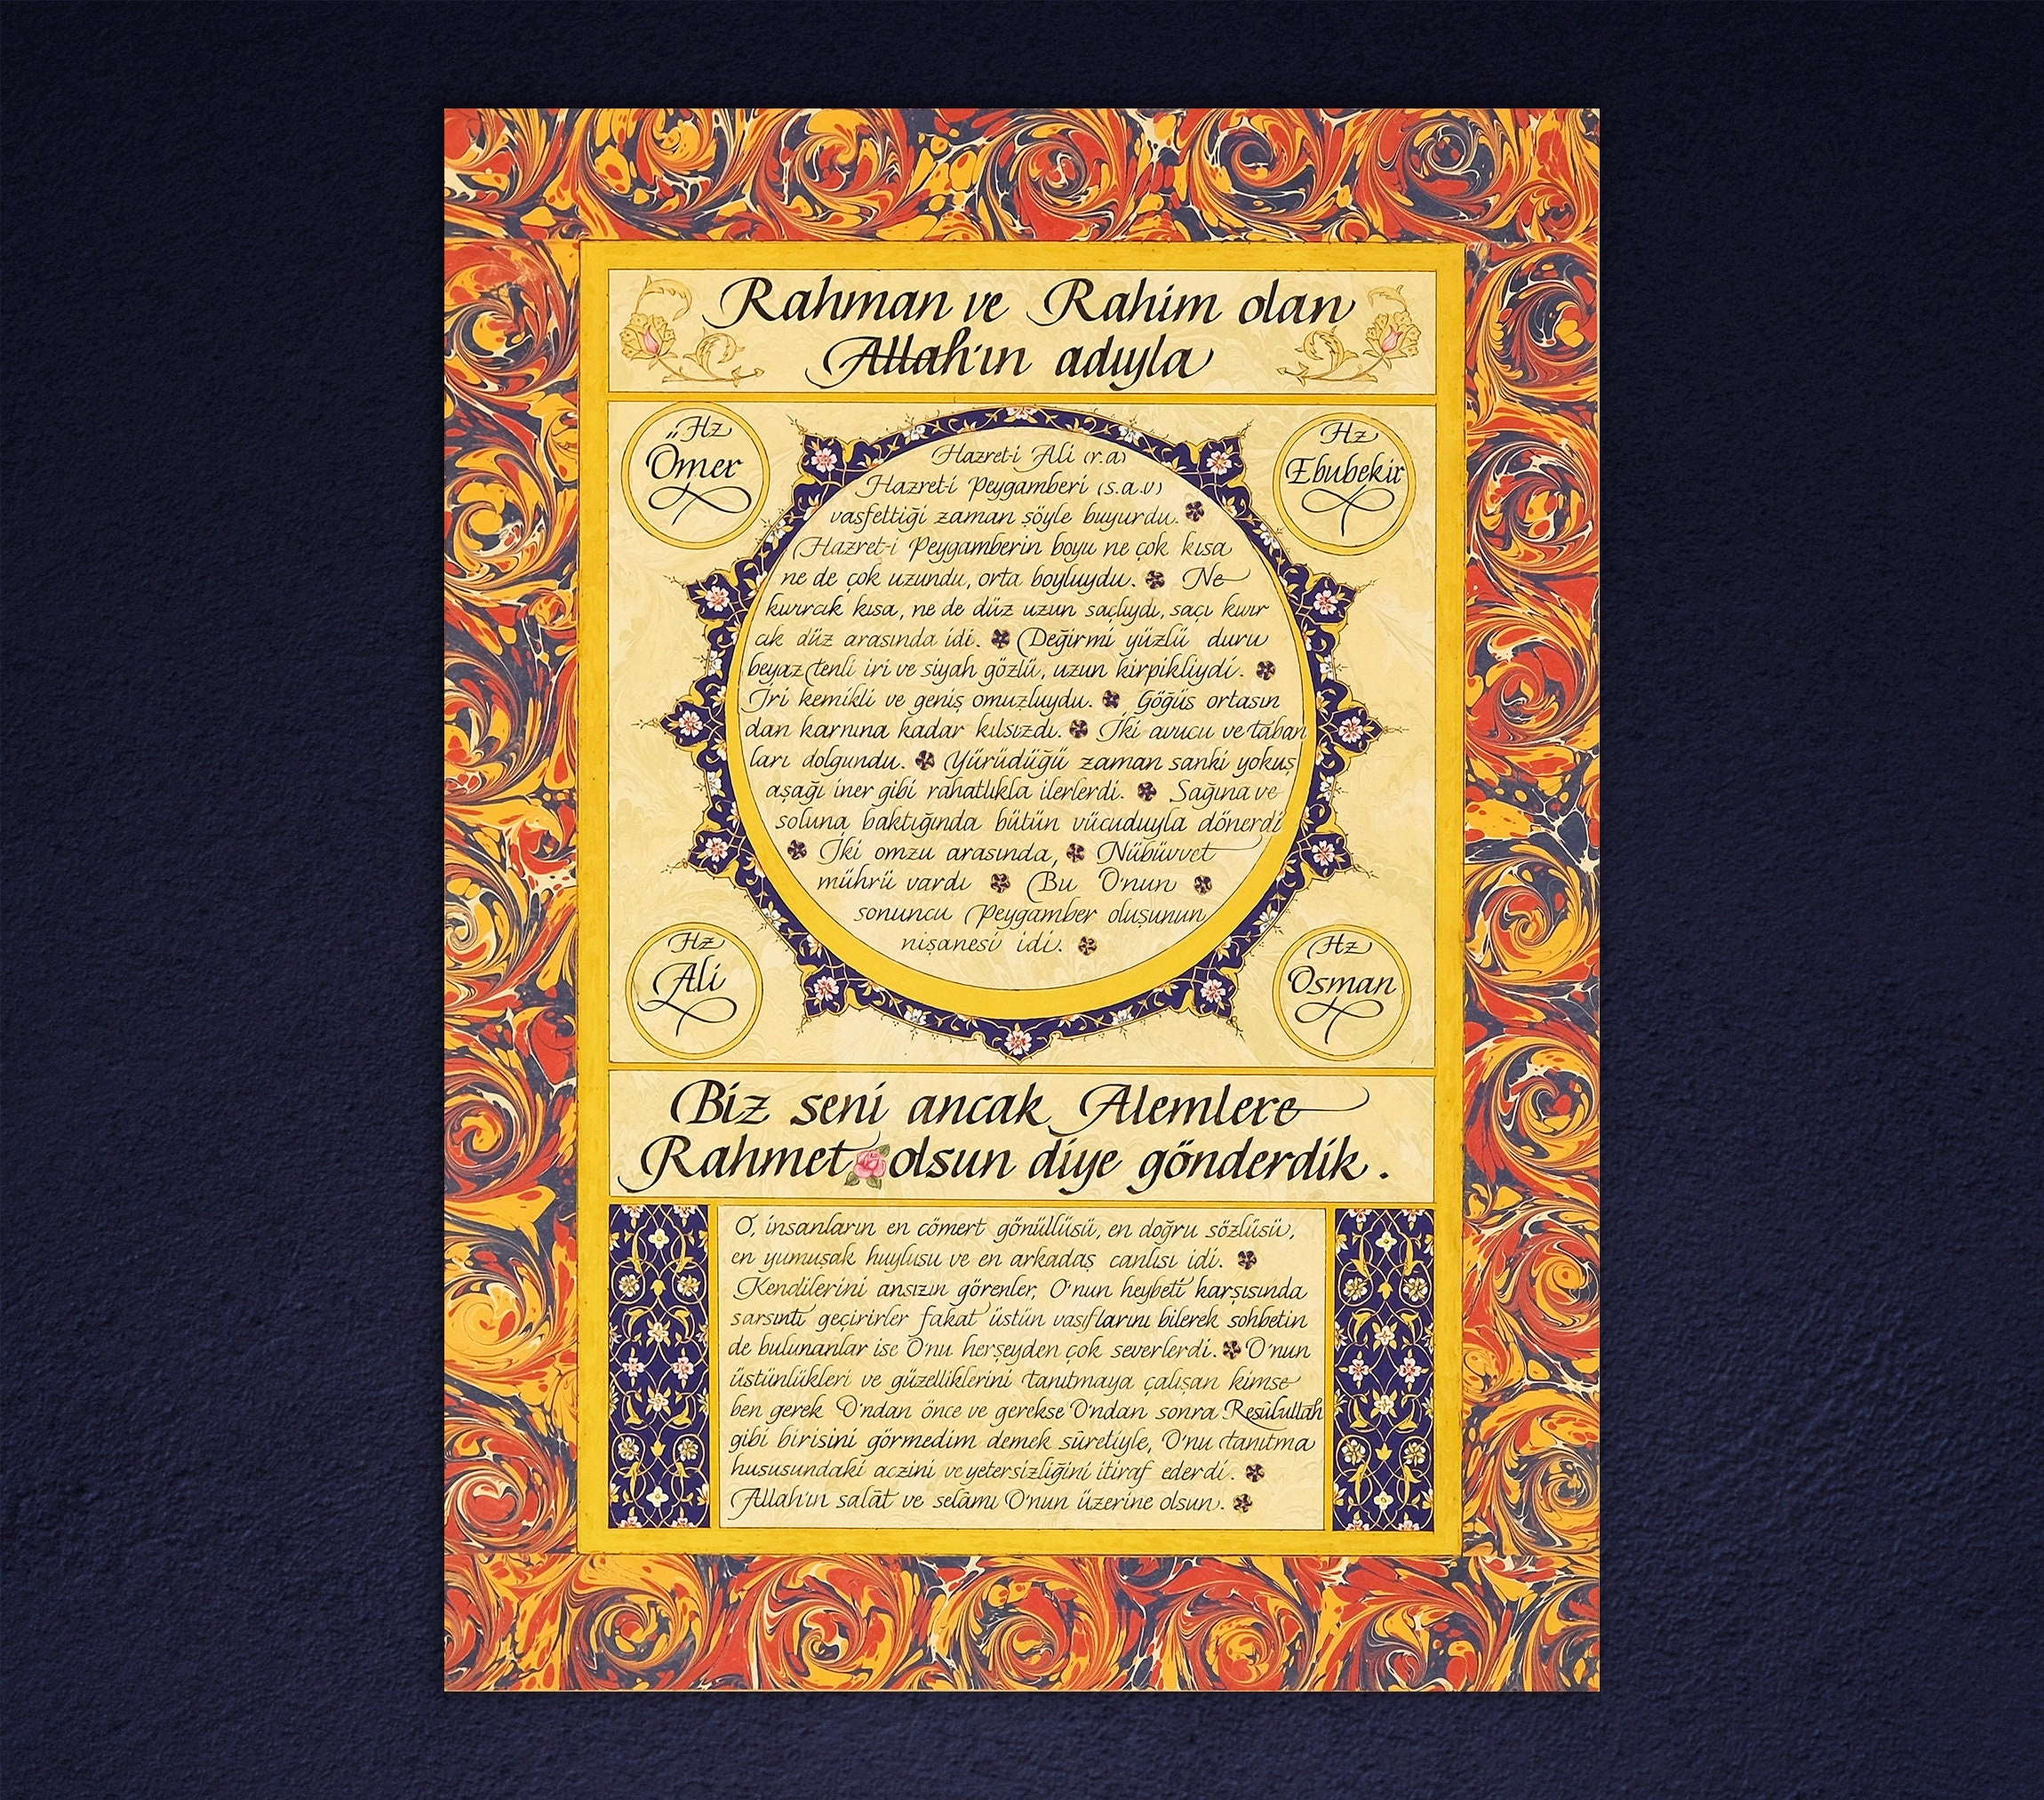 Rahman ve Rahim olan
Allah'ın adıyla
Hz
Ömer
Hz
Ebubekir
Hazret-i Ali (r.a)
Hazret-i Peygamberi (s.a.v)
vasfettiği zaman şöyle buyurdu.
Hazret-i Peygamberin boyu ne çok kısa
ne de çok uzundu, orta boyluydu. Ne
kıvırcık kısa, ne de düz uzun saçlıydı, saçı kıvır
cık düz arasında idi. Değirmi yüzlü duru
beyaz tenli iri ve siyah gözlü, uzun kirpikliydi.
İri kemikli ve geniş omuzluydu. Göğüs ortasın
dan karnına kadar kılsızdı. İki avucu ve taban
ları dolgundu. Yürüdüğü zaman sanki yokuş
aşağı iner gibi rahatlıkla ilerlerdi. Sağına ve
soluna baktığında bütün vücuduyla dönerdi
İki omzu arasında, Nübüvvet
mührü vardı Bu O'nun
sonuncu Peygamber oluşunun
nişanesi idi.
Hz
Ali
Hz
Osman
Biz seni ancak Alemlere
Rahmet olsun diye gönderdik.
O, insanların en cömert gönüllüsü, en doğru sözlüsü,
en yumuşak huylusu ve en arkadaş canlısı idi.
Kendilerini ansızın görenler, O'nun heybeti karşısında
sarsıntı geçirirler fakat üstün vasıflarını bilerek sohbetin
de bulunanlar ise O'nu herşeyden çok severlerdi. O'nun
üstünlükleri ve güzelliklerini tanıtmaya çalışan kimse
ben gerek O'ndan önce ve gerekse O'ndan sonra Resûlullah
gibi birisini görmedim demek sûretiyle, O'nu tanıtma
hususundaki aczini ve yetersizliğini itiraf ederdi.
Allah'ın salât ve selâmı O'nun üzerine olsun.